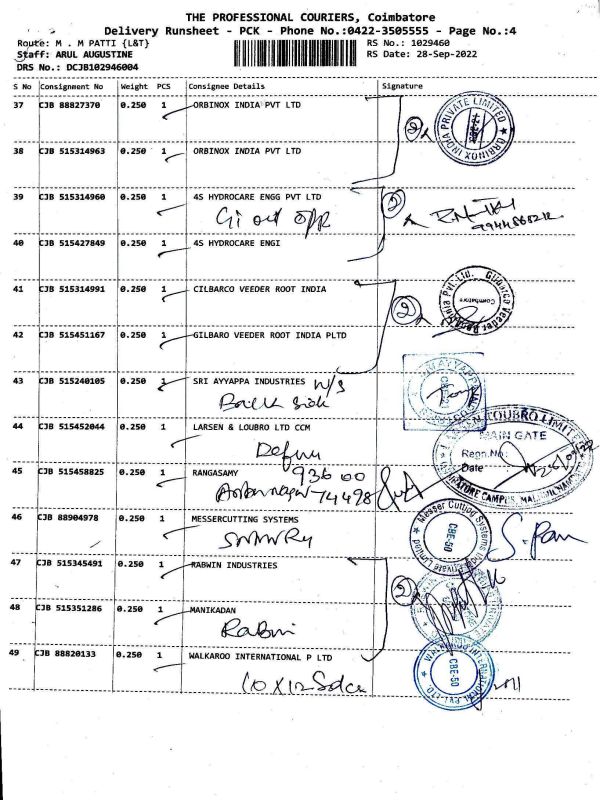 THE PROFESSIONAL COURIERS, Coimbatore
Delivery Runsheet - PCK - Phone No.:0422-3505555 - Page No.:4
Route: M . M PATTI {L&T}
RS No.: 1029460
Staff: ARUL AUGUSTINE
RS Date: 28-Sep-2022
DRS No.: DCJB102946004
S No Consignment No Weight PCS Consignee Details Signature
37 CJB 88827370 0.250 1 ORBINOX INDIA PVT LTD
ORBINOX INDIA PRIVATE LIMITED
2
38 CJB 515314963 0.250 1 ORBINOX INDIA PVT LTD
39 CJB 515314960 0.250 1 4S HYDROCARE ENGG PVT LTD
2
40 CJB 515427849 0.250 1 4S HYDROCARE ENGI
41 CJB 515314991 0.250 1 CILBARCO VEEDER ROOT INDIA
Coimbatore
2
42 CJB 515451167 0.250 1 GILBARO VEEDER ROOT INDIA PLTD
43 CJB 515240105 0.250 1 SRI AYYAPPA INDUSTRIES N/S
Back side
44 CJB 515452044 0.250 1 LARSEN & LOUBRO LTD CCM
MAIN GATE
Regn.No:
Date
45 CJB 515458825 0.250 1 RANGASAMY 93600
74498
46 CJB 88904978 0.250 1 MESSERCUTTING SYSTEMS
Messer Cutting Systems India Private Limited
CBE-50
47 CJB 515345491 0.250 1 RABWIN INDUSTRIES
2
48 CJB 515351286 0.250 1 MANIKADAN
49 CJB 88820133 0.250 1 WALKAROO INTERNATIONAL P LTD
WALKAROO INTERNATIONAL PVT LTD
CBE-50